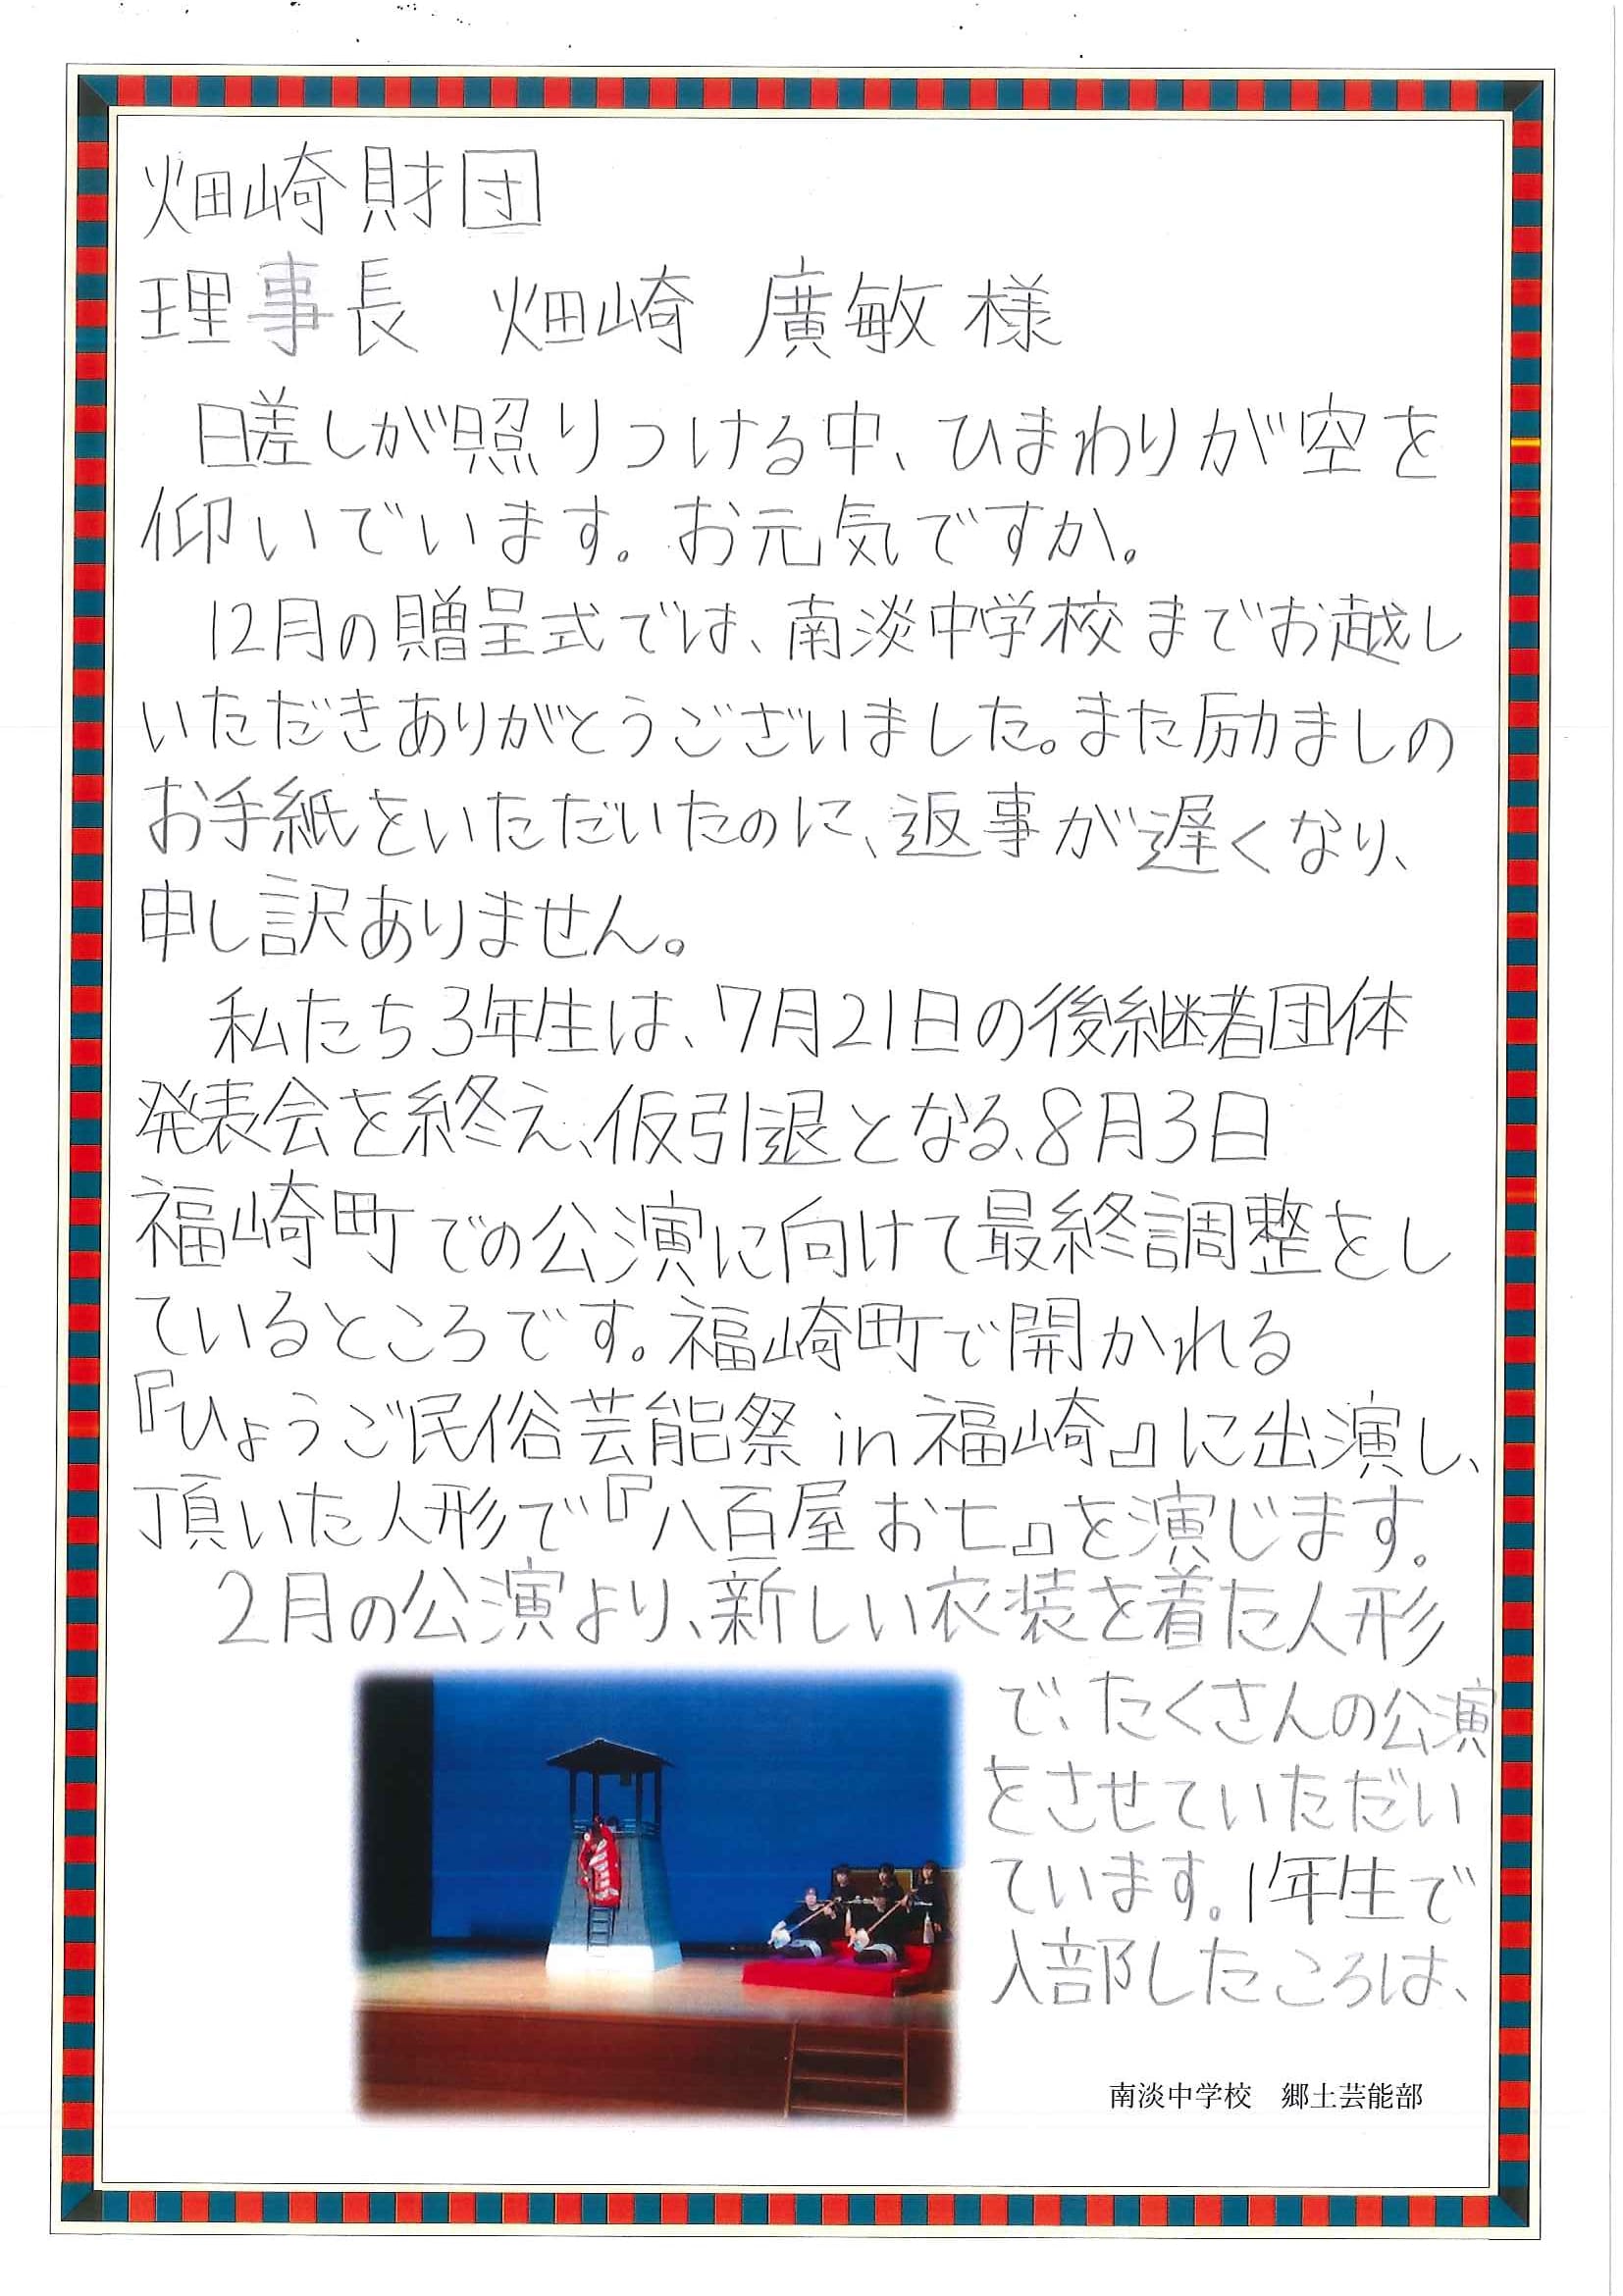 畑崎財団
理事長　畑崎 廣敏 様
日差しが照りつける中、ひまわりが空を
仰いでいます。お元気ですか。
12月の贈呈式では、南淡中学校までお越し
いただきありがとうございました。また励ましの
お手紙をいただいたのに、返事が遅くなり、
申し訳ありません。
私たち3年生は、7月21日の後継者団体
発表会を終え、仮引退となる、8月3日
福崎町での公演に向けて最終調整をし
ているところです。福崎町で開かれる
『ひょうご民俗芸能祭 in 福崎』に出演し、
頂いた人形で『八百屋お七』を演じます。
2月の公演より、新しい衣装を着た人形
で、たくさんの公演
をさせていただい
ています。1年生で
入部したころは、
南淡中学校　郷土芸能部